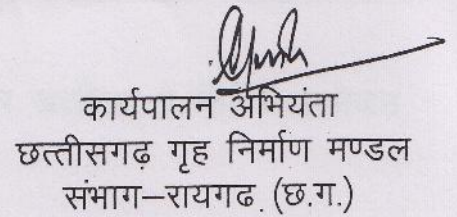 कार्यपालन अभियंता
छत्तीसगढ़ गृह निर्माण मण्डल
संभाग–रायगढ. (छ.ग.)